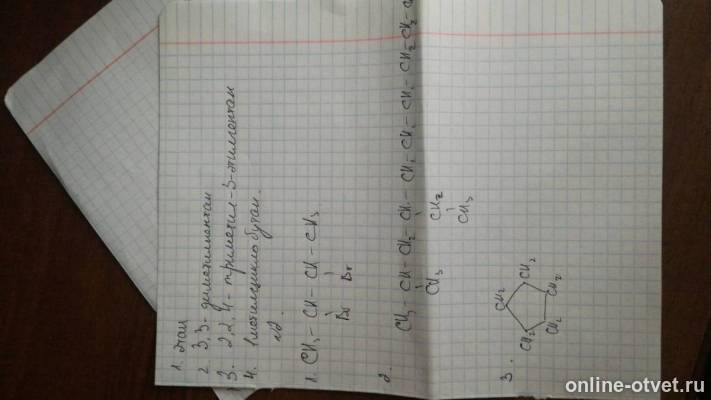 1. этан
2 3,3-диметилпентан
3. 2,2,4-триметил-3-этилгептан
4. 1метилциклобутан.
1. CH3 - CH - CH - CH3
Br Br
2. CH3 - CH - CH2 - CH - CH2 - CH2 - CH2 - CH2 - CH2 -
CH3 CH2
CH3
3.
CH2
CH2 CH2
CH2 CH2
online-otvet.ru